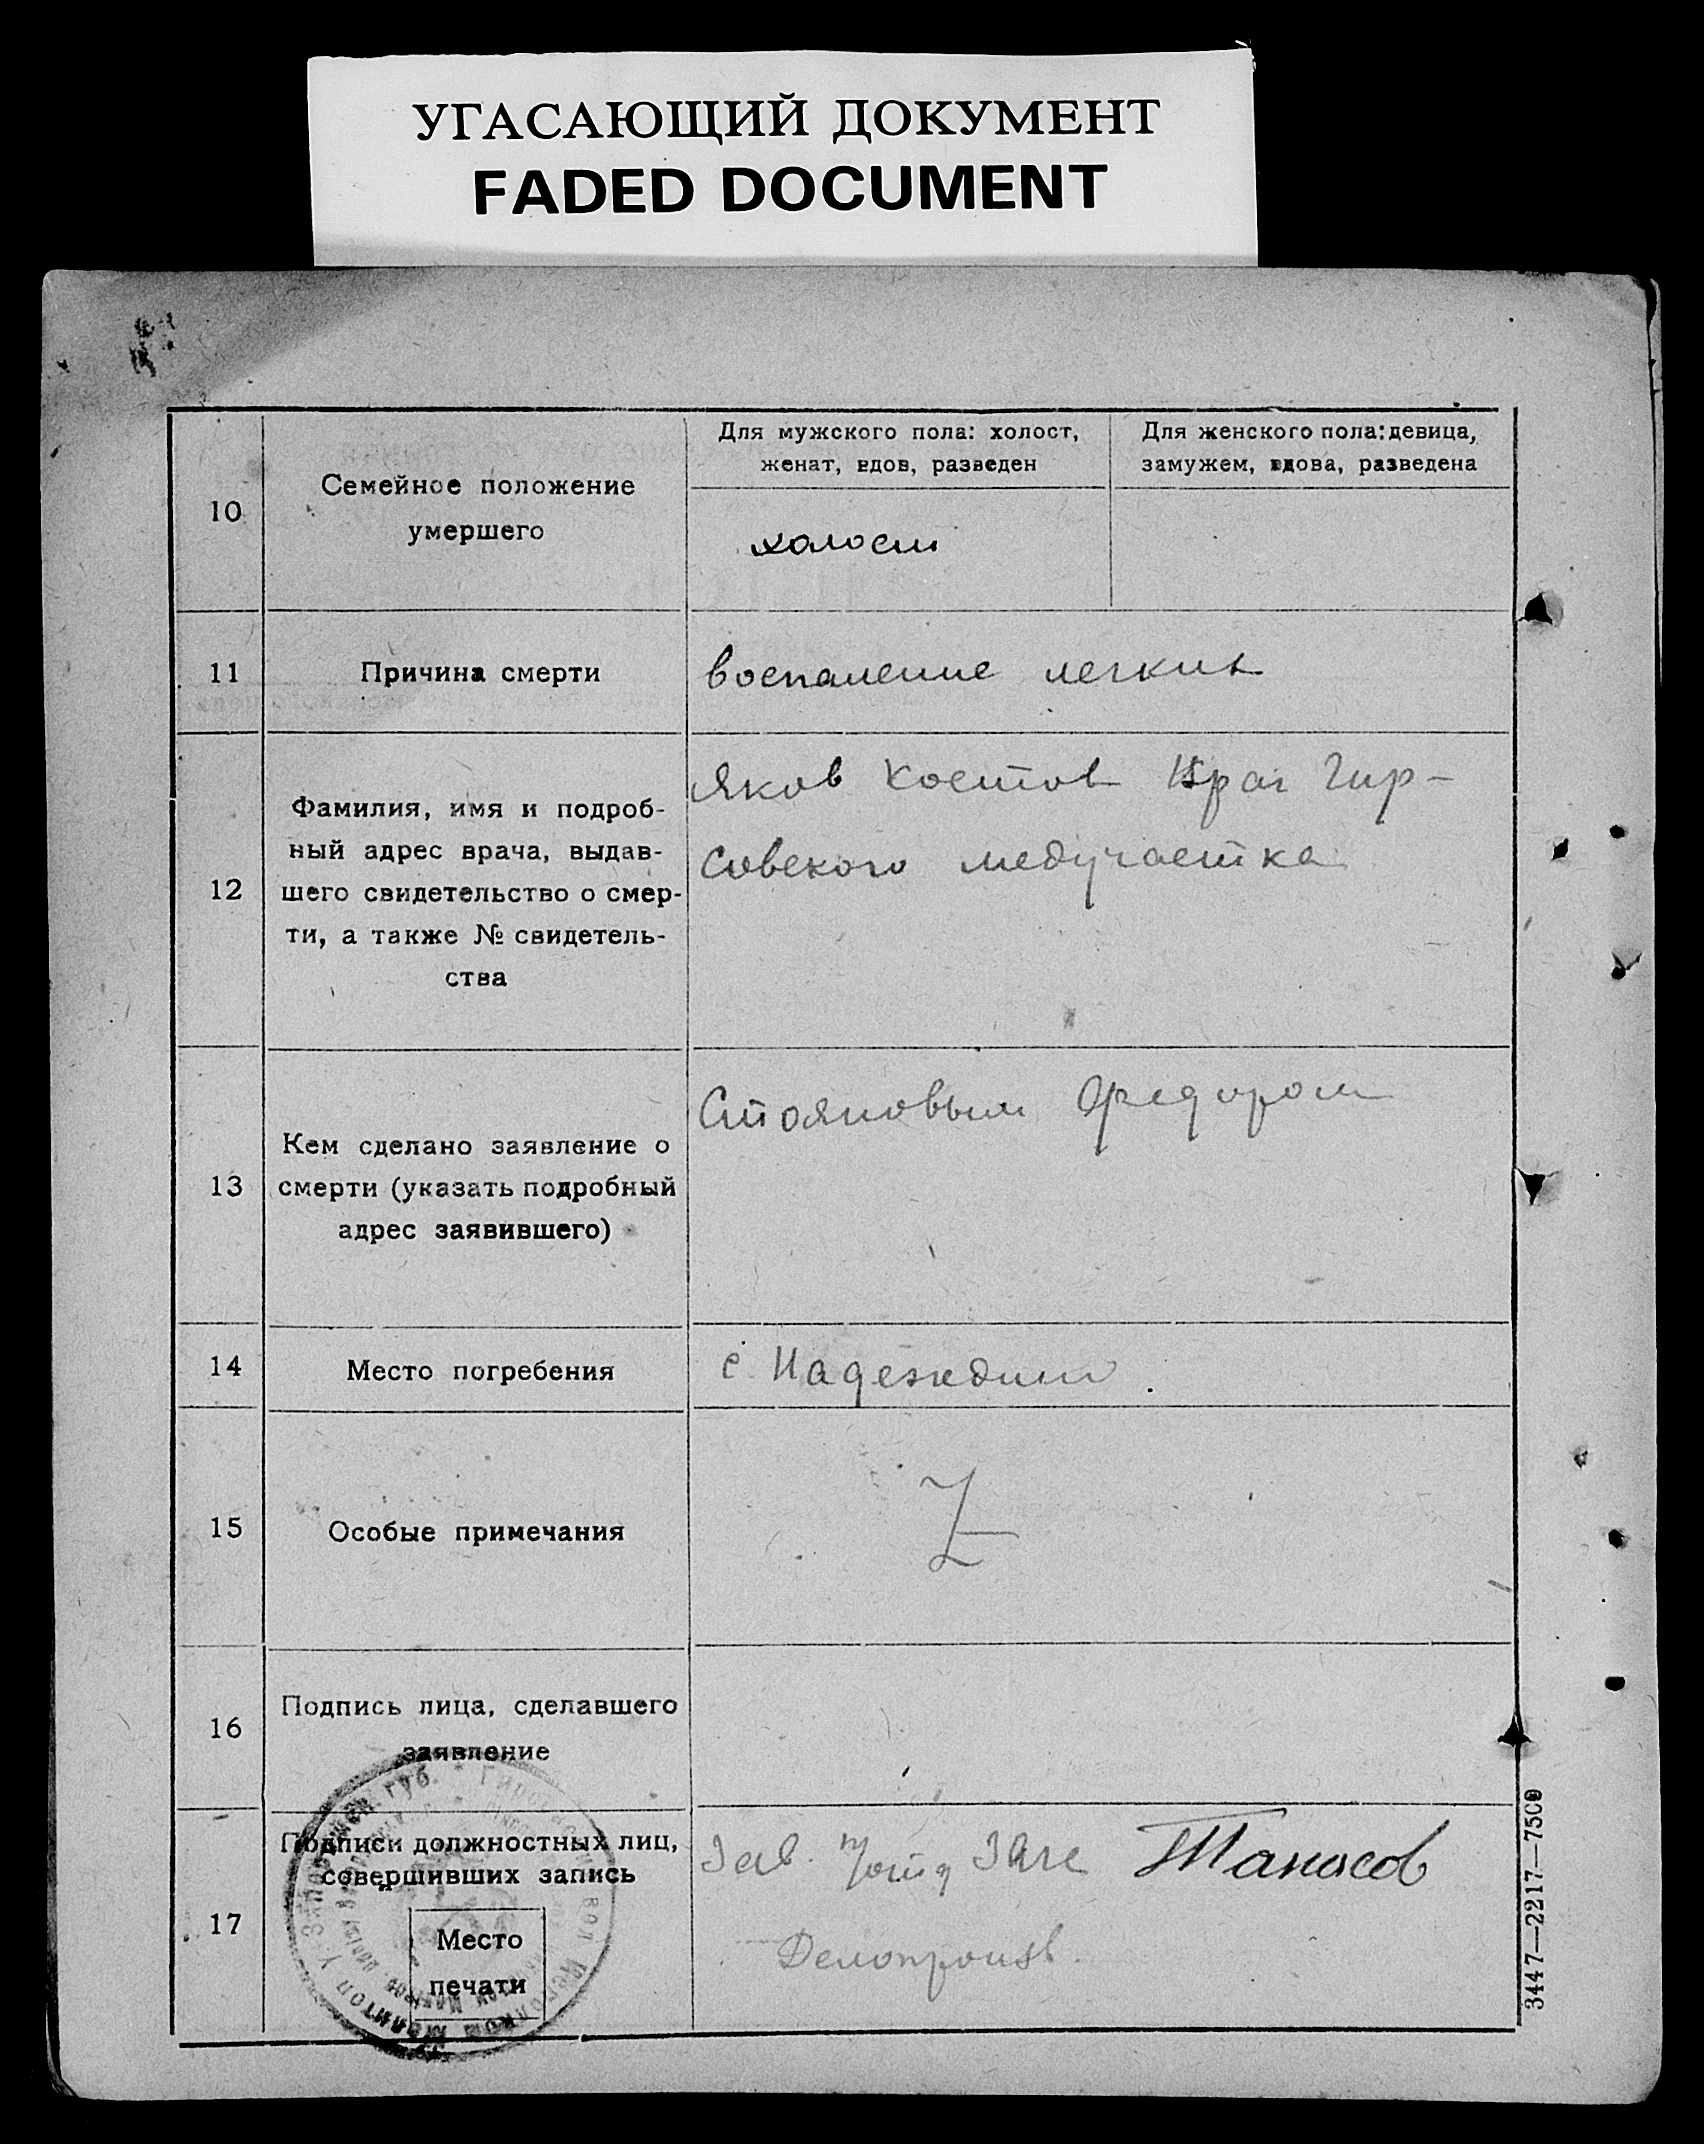 УГАСАЮЩИЙ ДОКУМЕНТ
FADED DOCUMENT
10
Семейное положение
умершего
Для мужского пола: холост,
женат, вдов, разведен
Для женского пола: девица,
замужем, вдова, разведена
холост
11
Причина смерти
воспаление легких
12
Фамилия, имя и подроб-
ный адрес врача, выдав-
шего свидетельство о смер-
ти, а также № свидетель-
ства
Яков Костов Врач Гир-
совского медучастка
13
Кем сделано заявление о
смерти (указать подробный
адрес заявившего)
Стояновым Федором
14
Место погребения
с. Надеждино
15
Особые примечания
Z
16
Подпись лица, сделавшего
заявление
17
Подписи должностных лиц,
совершивших запись
Место
печати
Зав. Загс Танасов
Делопроизв.
губ.
3447—2217—7500